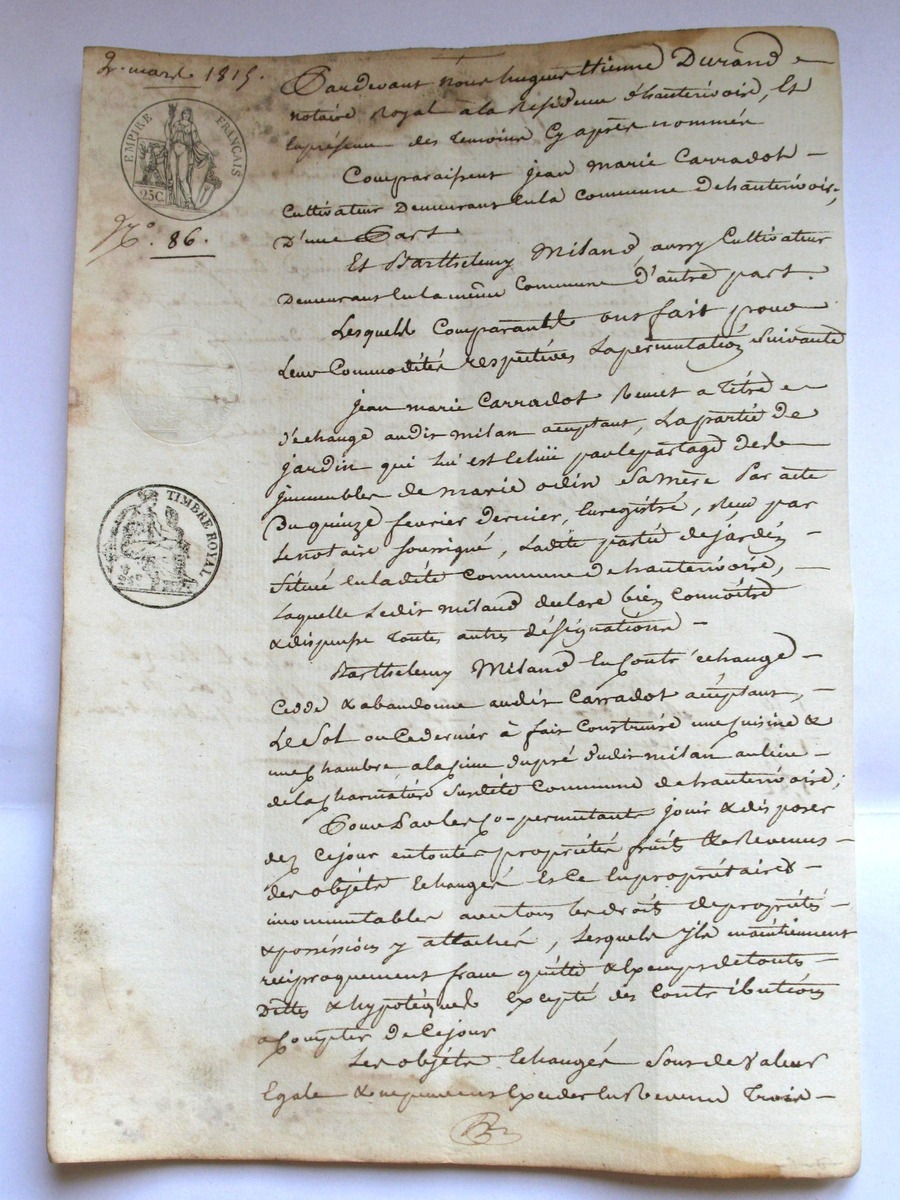 2. mars 1815.
EMPIRE FRANÇAIS
25C.
N.o 86.
TIMBRE ROYAL
Pardevant nous hugues Etienne Durand
notaire Royal a la Résidence d'hauterivoire, Et
En présence des temoins Cy après nommés
Comparaissent jean Marie Carradot
Cultivateur Demeurant En la commune De hauterivoire,
D'une Part
Et Barthelemy Miland aussy Cultivateur
Demeurant En la même Commune D'autre part.
Lesquels Comparants ont fait pour
Leur Commodités respectives La permutation Suivante
jean marie Carradot Remet a Titre
d'échange audit milan acceptant, La partie de
jardin qui lui est Echue par le partage de
jmmeubles de marie odin Sa mère Par acte
Du quinze fevrier Dernier, Enregistré, Reçu par
Le notaire Soussigné, Ladite partie de jardin
Située En la dite Commune D'hauterivoire,
Laquelle Ledit Miland declare bien Connoitre
& dispense Toutes autres désignations
Barthelemy Miland En Contr'échange
Cedde & abandonne audit Carradot acceptant,
Le Sol ou Ce dernier à fait Construire une cuisine &
une chambre a la cime du pré dudit milan au lieu
de la Susdite Commune de hauterivoire;
Pour Par les Co-permutants jouir & disposer
dez Ce jour en toutes propriétés fruits & Revenus
des objets Echangés Et Ce En propriétaires
incommutables avec tous les droits de propriétés
& possessions y attachés, Lesquels jls maintiennent
réciproquement franc quitte & Exemps de toutes
Dettes & hypotèques Excepté des Contributions
a Compter de Ce jour
Les objets Echangés Sont de Valeur
Egale & ne peuvent Exceder En Revenu Trois